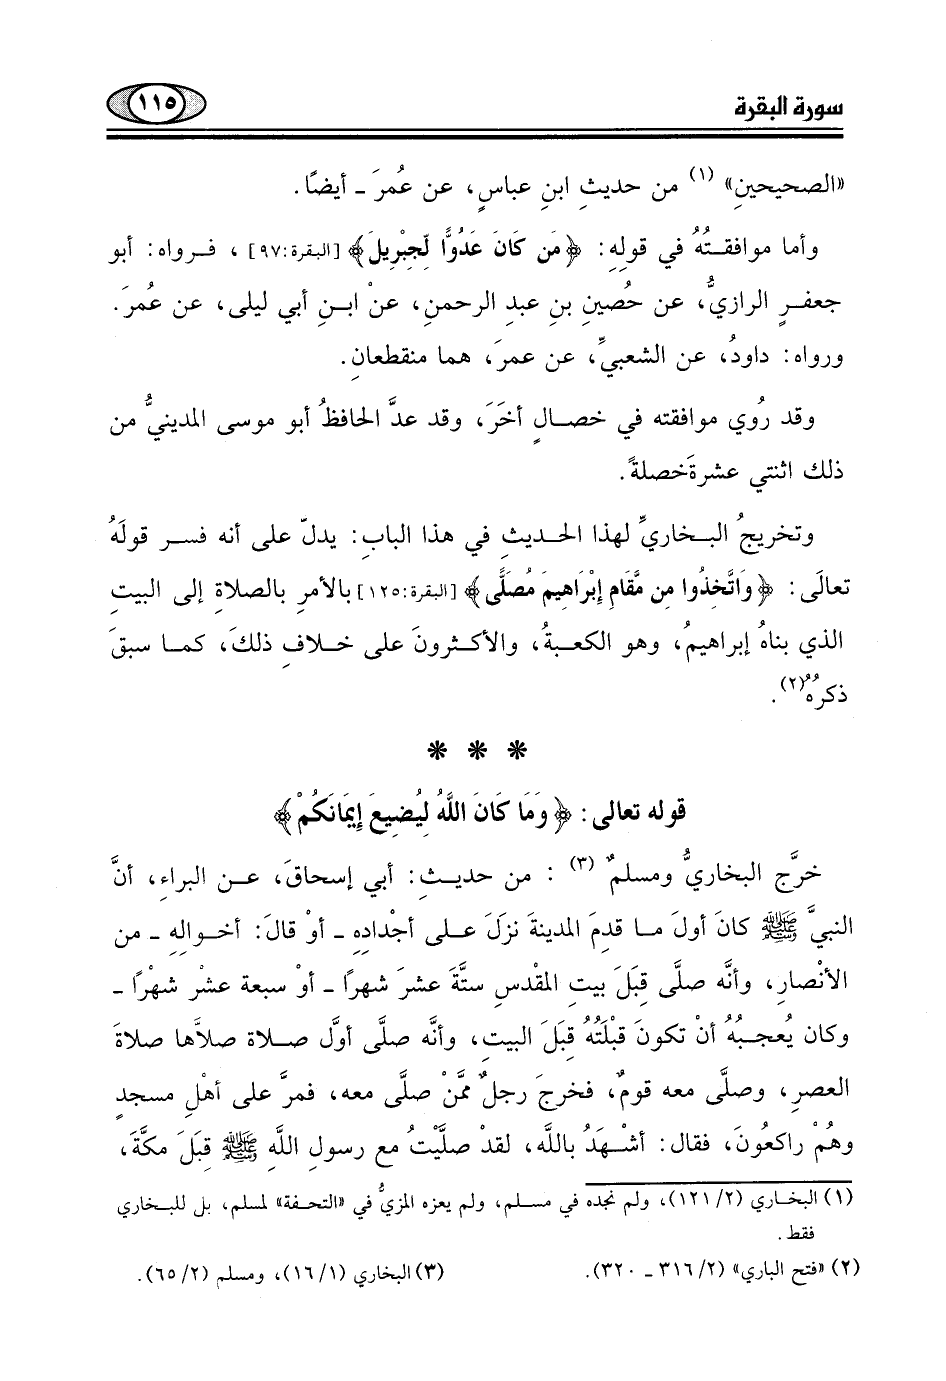 سورة البقرة
١١٥
«الصحيحين» (١) من حديثِ ابنِ عباسٍ، عن عُمرَ ـ أيضًا.
وأما موافقـتُهُ في قولِهِ: ﴿مَن كَانَ عَدُوًّا لِّجِبْرِيلَ﴾ [البقرة:٩٧] ، فـرواه: أبو
جعفـرٍ الرازيُّ، عن حُصينِ بنِ عبدِ الرحمنِ، عنْ ابـنِ أبي ليلى، عن عُمرَ.
ورواه: داودُ، عن الشعبيِّ، عن عمرَ، هما منقطعانِ.
وقد رُوي موافقته في خصـالٍ أُخَرَ، وقد عدَّ الحافظُ أبو موسى المدينيُّ من
ذلك اثنتي عشرةَ خصلةً.
وتخريجُ البـخاريِّ لهذا الحديثِ في هذا البابِ: يدلّ على أنه فسـر قولَهُ
تعالَى: ﴿وَاتَّخِذُوا مِن مَّقَامِ إِبْرَاهِيمَ مُصَلًّى﴾ [البقرة:١٢٥] بالأمرِ بالصلاةِ إلى البيتِ
الذي بناهُ إبراهيمُ، وهو الكعبةُ، والأكثرونَ على خـلافِ ذلكَ، كمـا سبقَ
ذكرُهُ(٢).
* * *
قوله تعالى: ﴿وَمَا كَانَ اللَّهُ لِيُضِيعَ إِيمَانَكُمْ﴾
خرَّج البخاريُّ ومسلمٌ (٣) : من حديـثِ: أبي إسحاقَ، عـنِ البراءِ، أنَّ
النبيَّ ﷺ كانَ أولَ مـا قدمَ المدينةَ نزَلَ علـى أجْدادِهِ ـ أوْ قالَ: أخـوالِهِ ـ من
الأنْصارِ، وأنَّه صلَّى قِبَلَ بيتِ المقْدسِ ستَّةَ عشَرَ شهرًا ـ أوْ سبعة عشَرَ شهْرًا ـ
وكان يُعجـبُهُ أنْ تكونَ قبْلَتُهُ قِبَلَ البيتِ، وأنَّه صلَّى أولَ صـلاة صلاَّها صلاةَ
العصرِ، وصلَّى معه قومٌ، فخرجَ رجلٌ ممَّنْ صلَّى معه، فمرَّ على أهْلِ مسجدٍ
وهُمْ راكعُونَ، فقال: أشْهَدُ باللَّه، لقدْ صليْتُ مع رسولِ اللَّهِ ﷺ قِبَلَ مكَّةَ،
(١) البخـاري (٢/ ١٢١)، ولم نجده في مسـلم، ولم يعزه المزيُّ في «التحـفة» لمسلم، بل للبـخاري
فقط.
(٢) «فتح الباري» (٢/ ٣١٦ ـ ٣٢٠).
(٣) البخاري (١/ ١٦)، ومسلم (٢/ ٦٥).